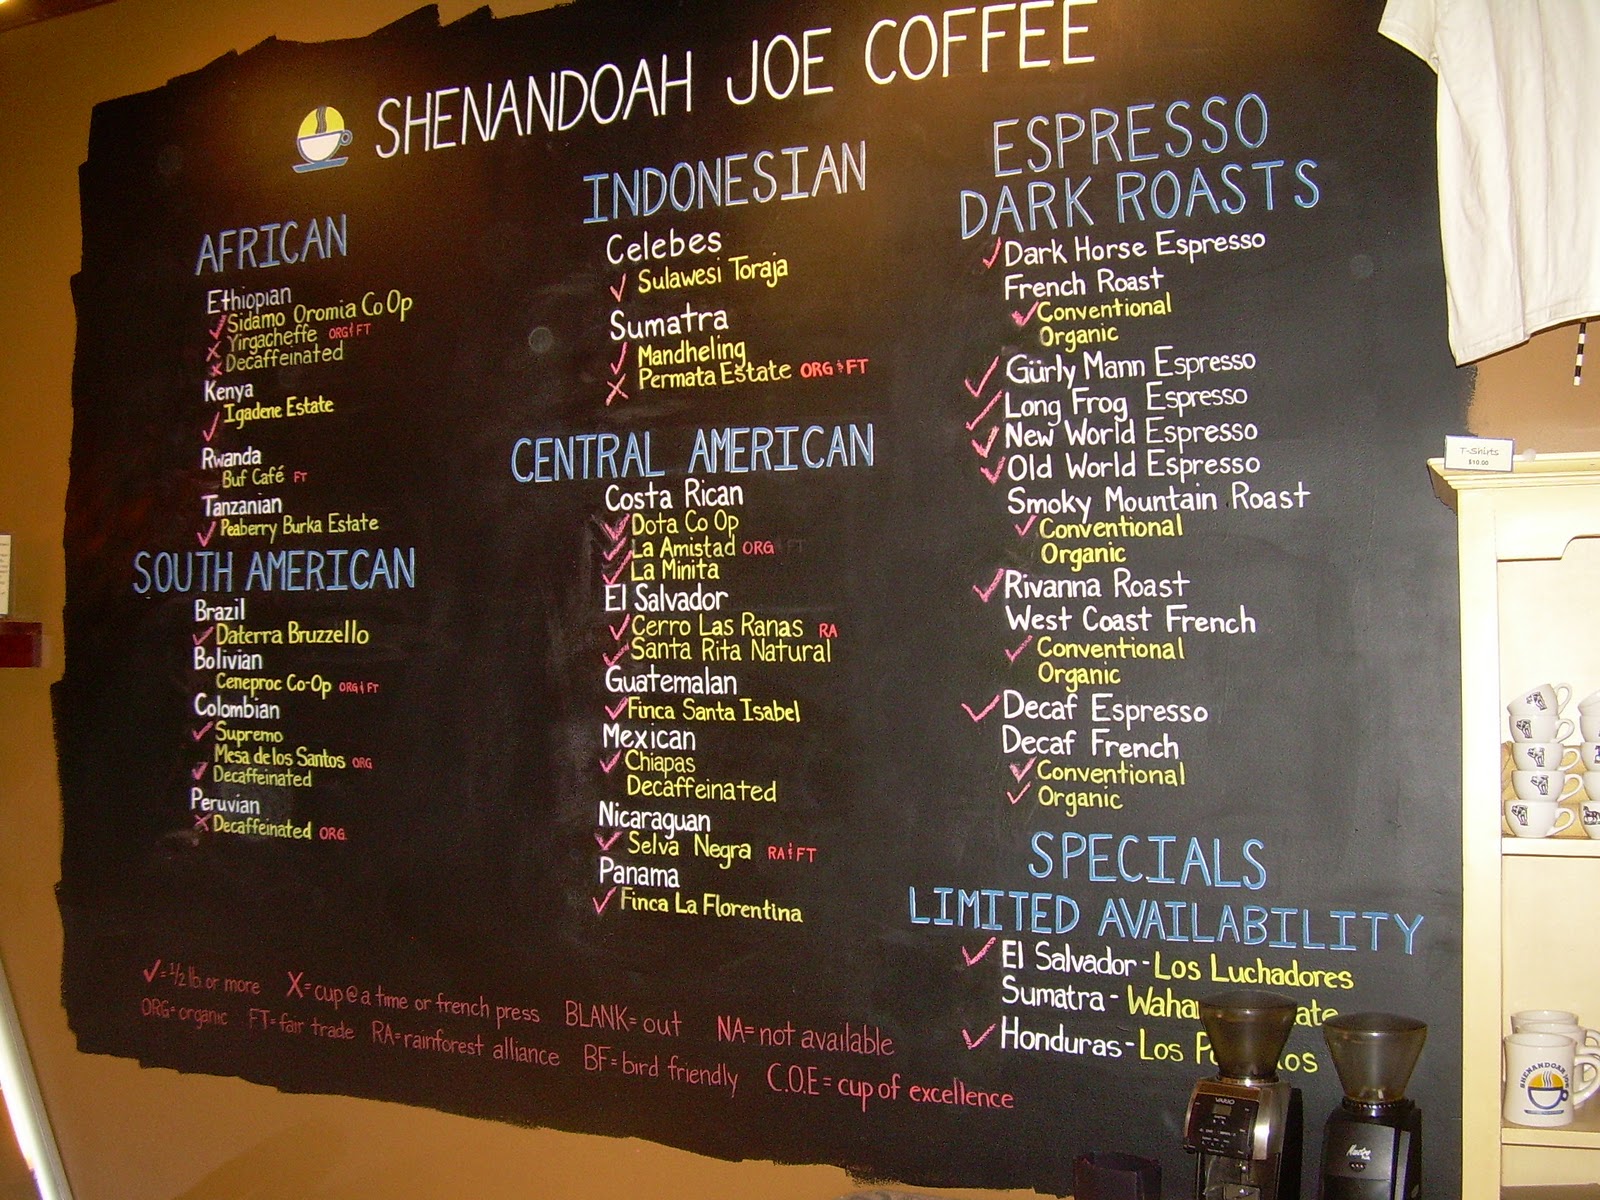 SHENANDOAH JOE COFFEE
AFRICAN
Ethiopian
✓ Sidamo Oromia Co Op
X Yirgacheffe ORG & FT
X Decaffeinated
Kenya
✓ Igadene Estate
Rwanda
Buf Café FT
Tanzanian
✓ Peaberry Burka Estate
SOUTH AMERICAN
Brazil
✓ Daterra Bruzzello
Bolivian
Ceneproc Co-Op ORG & FT
Colombian
✓ Supremo
Mesa de los Santos ORG
✓ Decaffeinated
Peruvian
X Decaffeinated ORG
INDONESIAN
Celebes
✓ Sulawesi Toraja
Sumatra
✓ Mandheling
X Permata Estate ORG & FT
CENTRAL AMERICAN
Costa Rican
✓ Dota Co Op
✓ La Amistad ORG FT
✓ La Minita
El Salvador
✓ Cerro Las Ranas RA
✓ Santa Rita Natural
Guatemalan
✓ Finca Santa Isabel
Mexican
✓ Chiapas
Decaffeinated
Nicaraguan
✓ Selva Negra RA & FT
Panama
✓ Finca La Florentina
ESPRESSO
DARK ROASTS
✓ Dark Horse Espresso
French Roast
✓ Conventional
Organic
✓ Gürly Mann Espresso
✓ Long Frog Espresso
✓ New World Espresso
✓ Old World Espresso
Smoky Mountain Roast
✓ Conventional
Organic
✓ Rivanna Roast
West Coast French
✓ Conventional
Organic
✓ Decaf Espresso
Decaf French
✓ Conventional
✓ Organic
SPECIALS
LIMITED AVAILABILITY
✓ El Salvador - Los Luchadores
Sumatra -
✓ Honduras - Los
✓ = 1/2 lb. or more X = cup @ a time or french press BLANK = out NA = not available
ORG = organic FT = fair trade RA = rainforest alliance BF = bird friendly C.O.E = cup of excellence
T-Shirts
$10.00
SHENANDOAH JOE
VARIO
Maestro